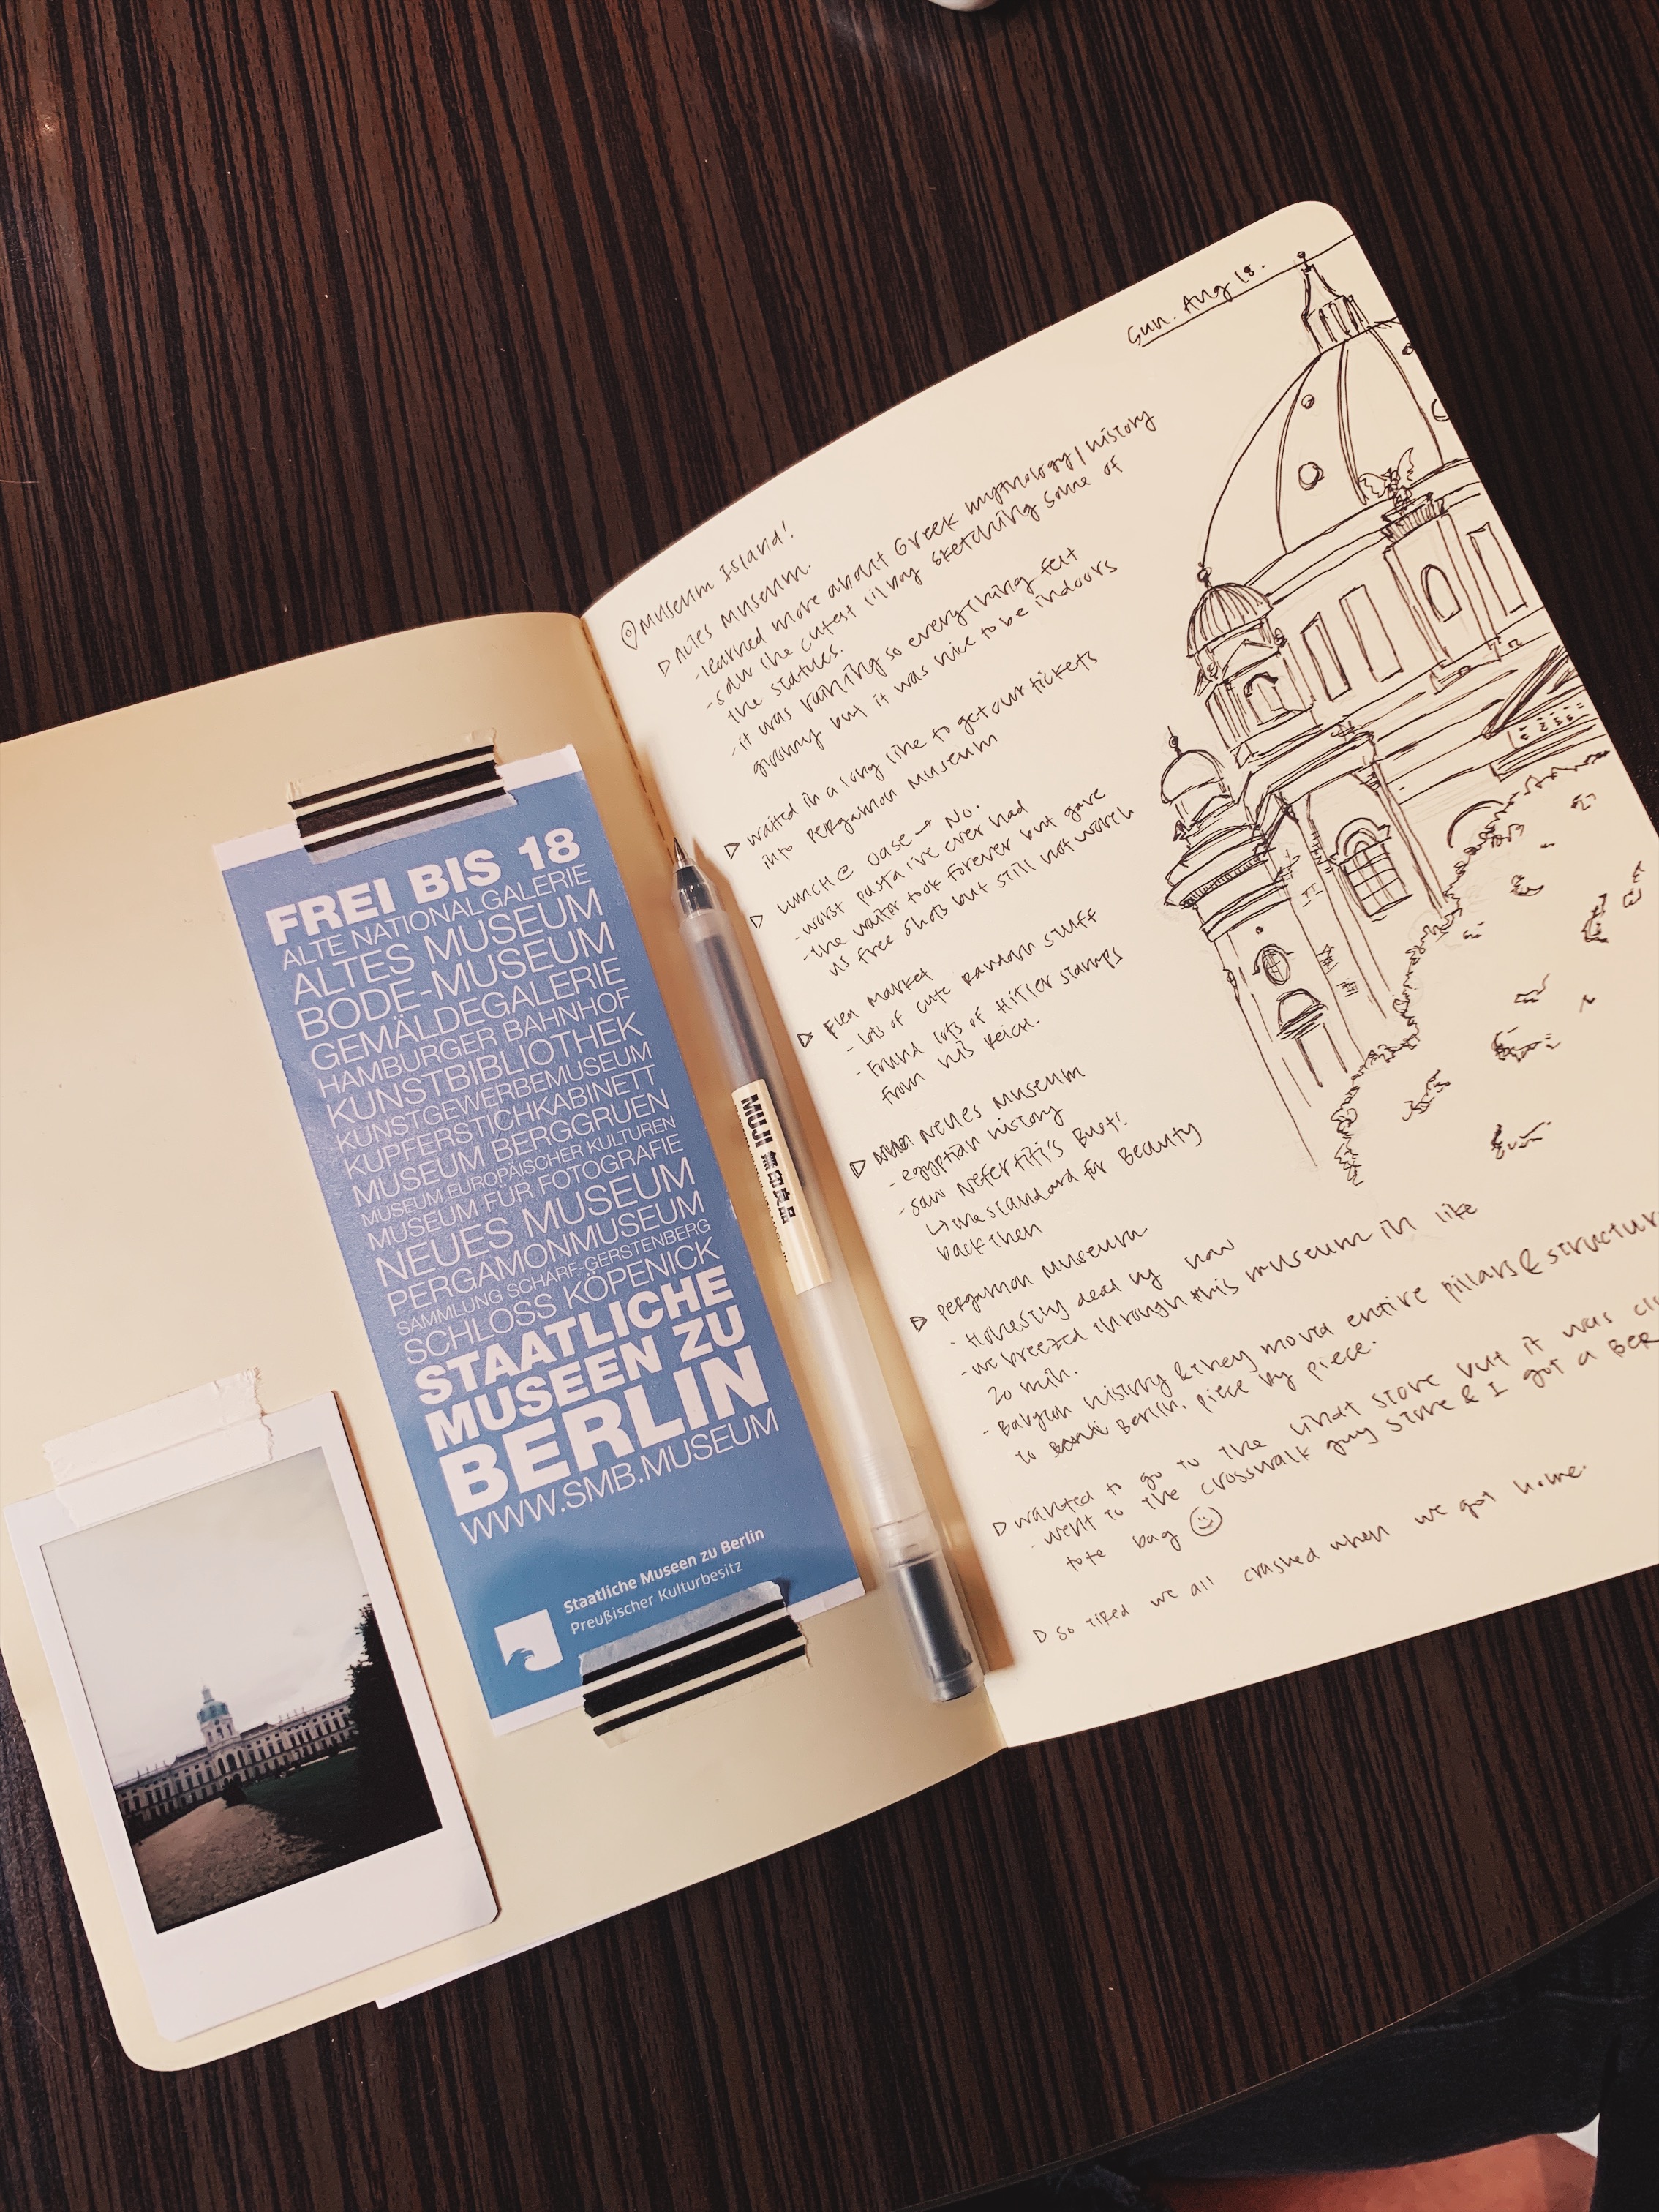 FREI BIS 18
ALTE NATIONALGALERIE
ALTES MUSEUM
BODE-MUSEUM
GEMÄLDEGALERIE
HAMBURGER BAHNHOF
KUNSTBIBLIOTHEK
KUNSTGEWERBEMUSEUM
KUPFERSTICHKABINETT
MUSEUM BERGGRUEN
MUSEUM EUROPÄISCHER KULTUREN
MUSEUM FÜR FOTOGRAFIE
NEUES MUSEUM
PERGAMONMUSEUM
SAMMLUNG SCHARF-GERSTENBERG
SCHLOSS KÖPENICK
STAATLICHE
MUSEEN ZU
BERLIN
WWW.SMB.MUSEUM
Staatliche Museen zu Berlin
Preußischer Kulturbesitz
MUJI 無印良品
Sun. Aug 18.
Museum Island!
Altes Museum.
- learned more about Greek mythology/history
- saw the cutest lil boy sketching some of
the statues.
- it was raining so everything felt
gloomy but it was nice to be indoors
waited in a long line to get our tickets
into Pergamon Museum
Lunch @ Oase → No.
- worst pasta I've ever had
- the waiter took forever but gave
us free shots but still not worth
Flea Market
- lots of cute random stuff
- Found lots of Hitler stamps
from his Reich.
Neues Museum
- egyptian history
- saw Nefertiti's Bust!
↳ the standard for Beauty
back then
Pergamon Museum
- Honestly dead by now
- we breezed through this museum in like
20 min.
- Babylon history & they moved entire pillars & structur
to Berlin. piece by piece.
wanted to go to the Lindt store but it was cl
- went to the crosswalk guy store & I got a BER
tote bag
so tired we all crashed when we got home.